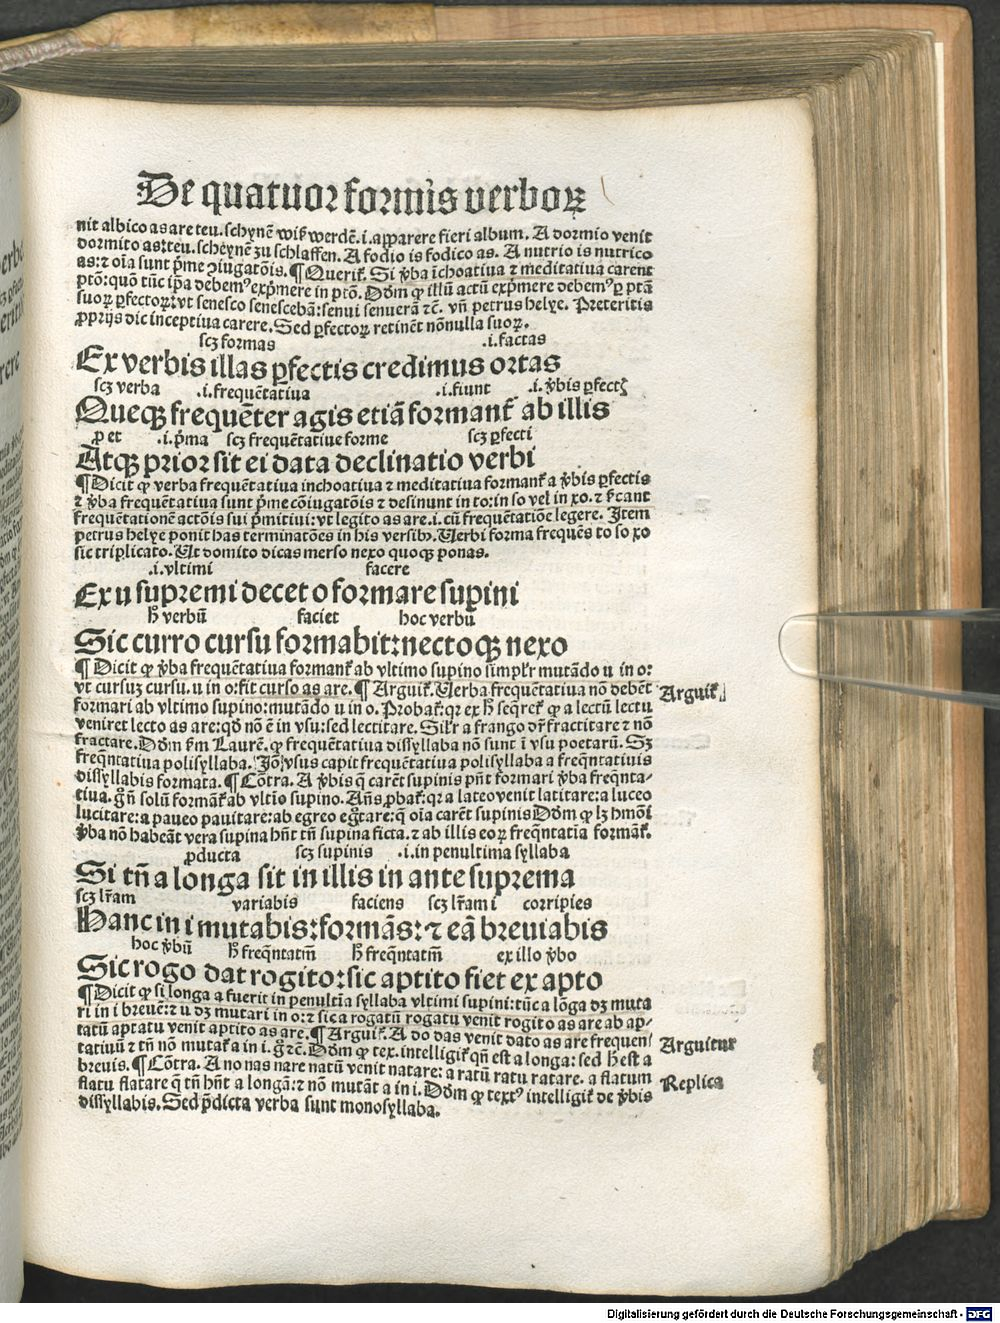 De quatuor formis verboꝝ
nit albico as are teu. schynē wiß werdē. i. apparere fieri album. A dormio venit
dormito as: teu. scheynē zu schlaffen. A fodio is fodico as. A nutrio is nutrico
as: ⁊ oīa sunt pͥme ↄiugatōis. ¶ Queriꝉ. Si v̄ba īchoatiua ⁊ meditatiua carent
ptō: quō tūc ip̄a debemꝰ exp̄mere in ptō. Dōm ꝙ illū actū exp̄mere debemꝰ ꝑ ptā
suoꝝ ꝑfectoꝝ: vt senesco senescebā: senui senuerā ⁊c. vn̄ petrus helye. Preteritis
ꝓprijs dic inceptiua carere. Sed ꝑfectoꝝ retinēt nōnulla suoꝝ.
scꝫ formas .i. factas
Ex verbis illas ꝑfectis credimus ortas
scꝫ verba .i. frequētatiua .i. fiunt .i. v̄bis ꝑfectꝭ
Quecꝫ frequēter agis etiā formanꝉ ab illis
ꝓ et .i. pͥma scꝫ frequētatiue forme scꝫ ꝑfecti
Atqꝫ prior sit ei data declinatio verbi
¶ Dicit ꝙ verba frequētatiua inchoatiua ⁊ meditatiua formanꝉ a v̄bis ꝑfectis
⁊ v̄ba frequētatiua sunt pͥme cōiugatōis ⁊ desinunt in to: in so vel in xo. ⁊ sͥcant
frequētationē actōis sui pͥmitiui: vt legito as are. i. cū frequētatiōe legere. Item
petrus helye ponit has terminatōes in his versibꝰ. Verbi forma frequēs to so xo
sic triplicato. Ut domito dicas merso nexo quoqꝫ ponas.
.i. vltimi facere
Ex u supremi decet o formare supini
h̄ verbū faciet hoc verbū
Sic curro cursu formabit: nectoqꝫ nexo
¶ Dicit ꝙ v̄ba frequētatiua formanꝉ ab vltimo supino simplr̄ mutādo u in o:
vt cursuꝫ cursu. u in o: fit curso as are. ¶ Arguiꝉ. Verba frequētatiua nō debēt
Arguiꝉ
formari ab vltimo supino: mutādo u in o. Probaꝉ: qꝛ ex h̄ seq̄reꝉ ꝙ a lectū lectu
veniret lecto as are: qđ nō ē in vsu: sed lectitare. Silr̄ a frango dr̄ fractitare ⁊ nō
fractare. Dōm ẜm Laurē. ꝙ frequētatiua dissyllaba nō sunt ī vsu poetarū. Sꝫ
freq̄ntatiua polisyllaba. Iō vsus capit frequētatiua polisyllaba a freq̄ntatiuis
dissyllabis formata. ¶ Cōtra. A v̄bis q̄ carēt supinis pn̄t formari v̄ba freq̄nta-
tiua. gͦn solū formāꝉ ab vltīo supino. Ans̄ ꝓbaꝉ: qꝛ a lateo venit latitare: a luceo
lucitare: a paueo pauitare: ab egreo egrotare: q̄ oīa carēt supinis Dōm ꝙ lꝫ hmōi
v̄ba nō habeāt vera supina hn̄t tn̄ supina ficta. ⁊ ab illis eoꝝ freq̄ntatīa formāꝉ.
ꝓducta scꝫ supinis .i. in penultima syllaba
Si tn̄ a longa sit in illis in ante suprema
scꝫ lr̄am variabis faciens scꝫ lr̄am i corripies
Hanc in i mutabis: formās: ⁊ eā breuiabis
hoc v̄bū h̄ freq̄ntatm̄ h̄ freq̄ntatm̄ ex illo v̄bo
Sic rogo dat rogito: sic aptito fiet ex apto
¶ Dicit ꝙ si longa a fuerit in penultīa syllaba vltimi supini: tūc a lōga dꝫ muta
ri in i breuē: ⁊ u dꝫ mutari in o: ⁊ sic a rogatū rogatu venit rogito as are ab ap-
tatū aptatu venit aptito as are. ¶ Arguiꝉ. A do das venit dato as are frequen
tatiuū ⁊ tn̄ nō mutaꝉ a in i. gͦ ⁊c. Dōm ꝙ tex. intelligiꝉ qn̄ est a longa: sed h̄ est a
Arguitur
breuis. ¶ Cōtra. A no nas nare natū venit natare: a ratū ratu ratare. a flatum
flatu flatare q̄ tn̄ hn̄t a longā: ⁊ nō mutāt a in i. Dōm ꝙ textꝰ intelligiꝉ de v̄bis
Replica
dissyllabis. Sed p̄dicta verba sunt monosyllaba.
Digitalisierung gefördert durch die Deutsche Forschungsgemeinschaft - DFG